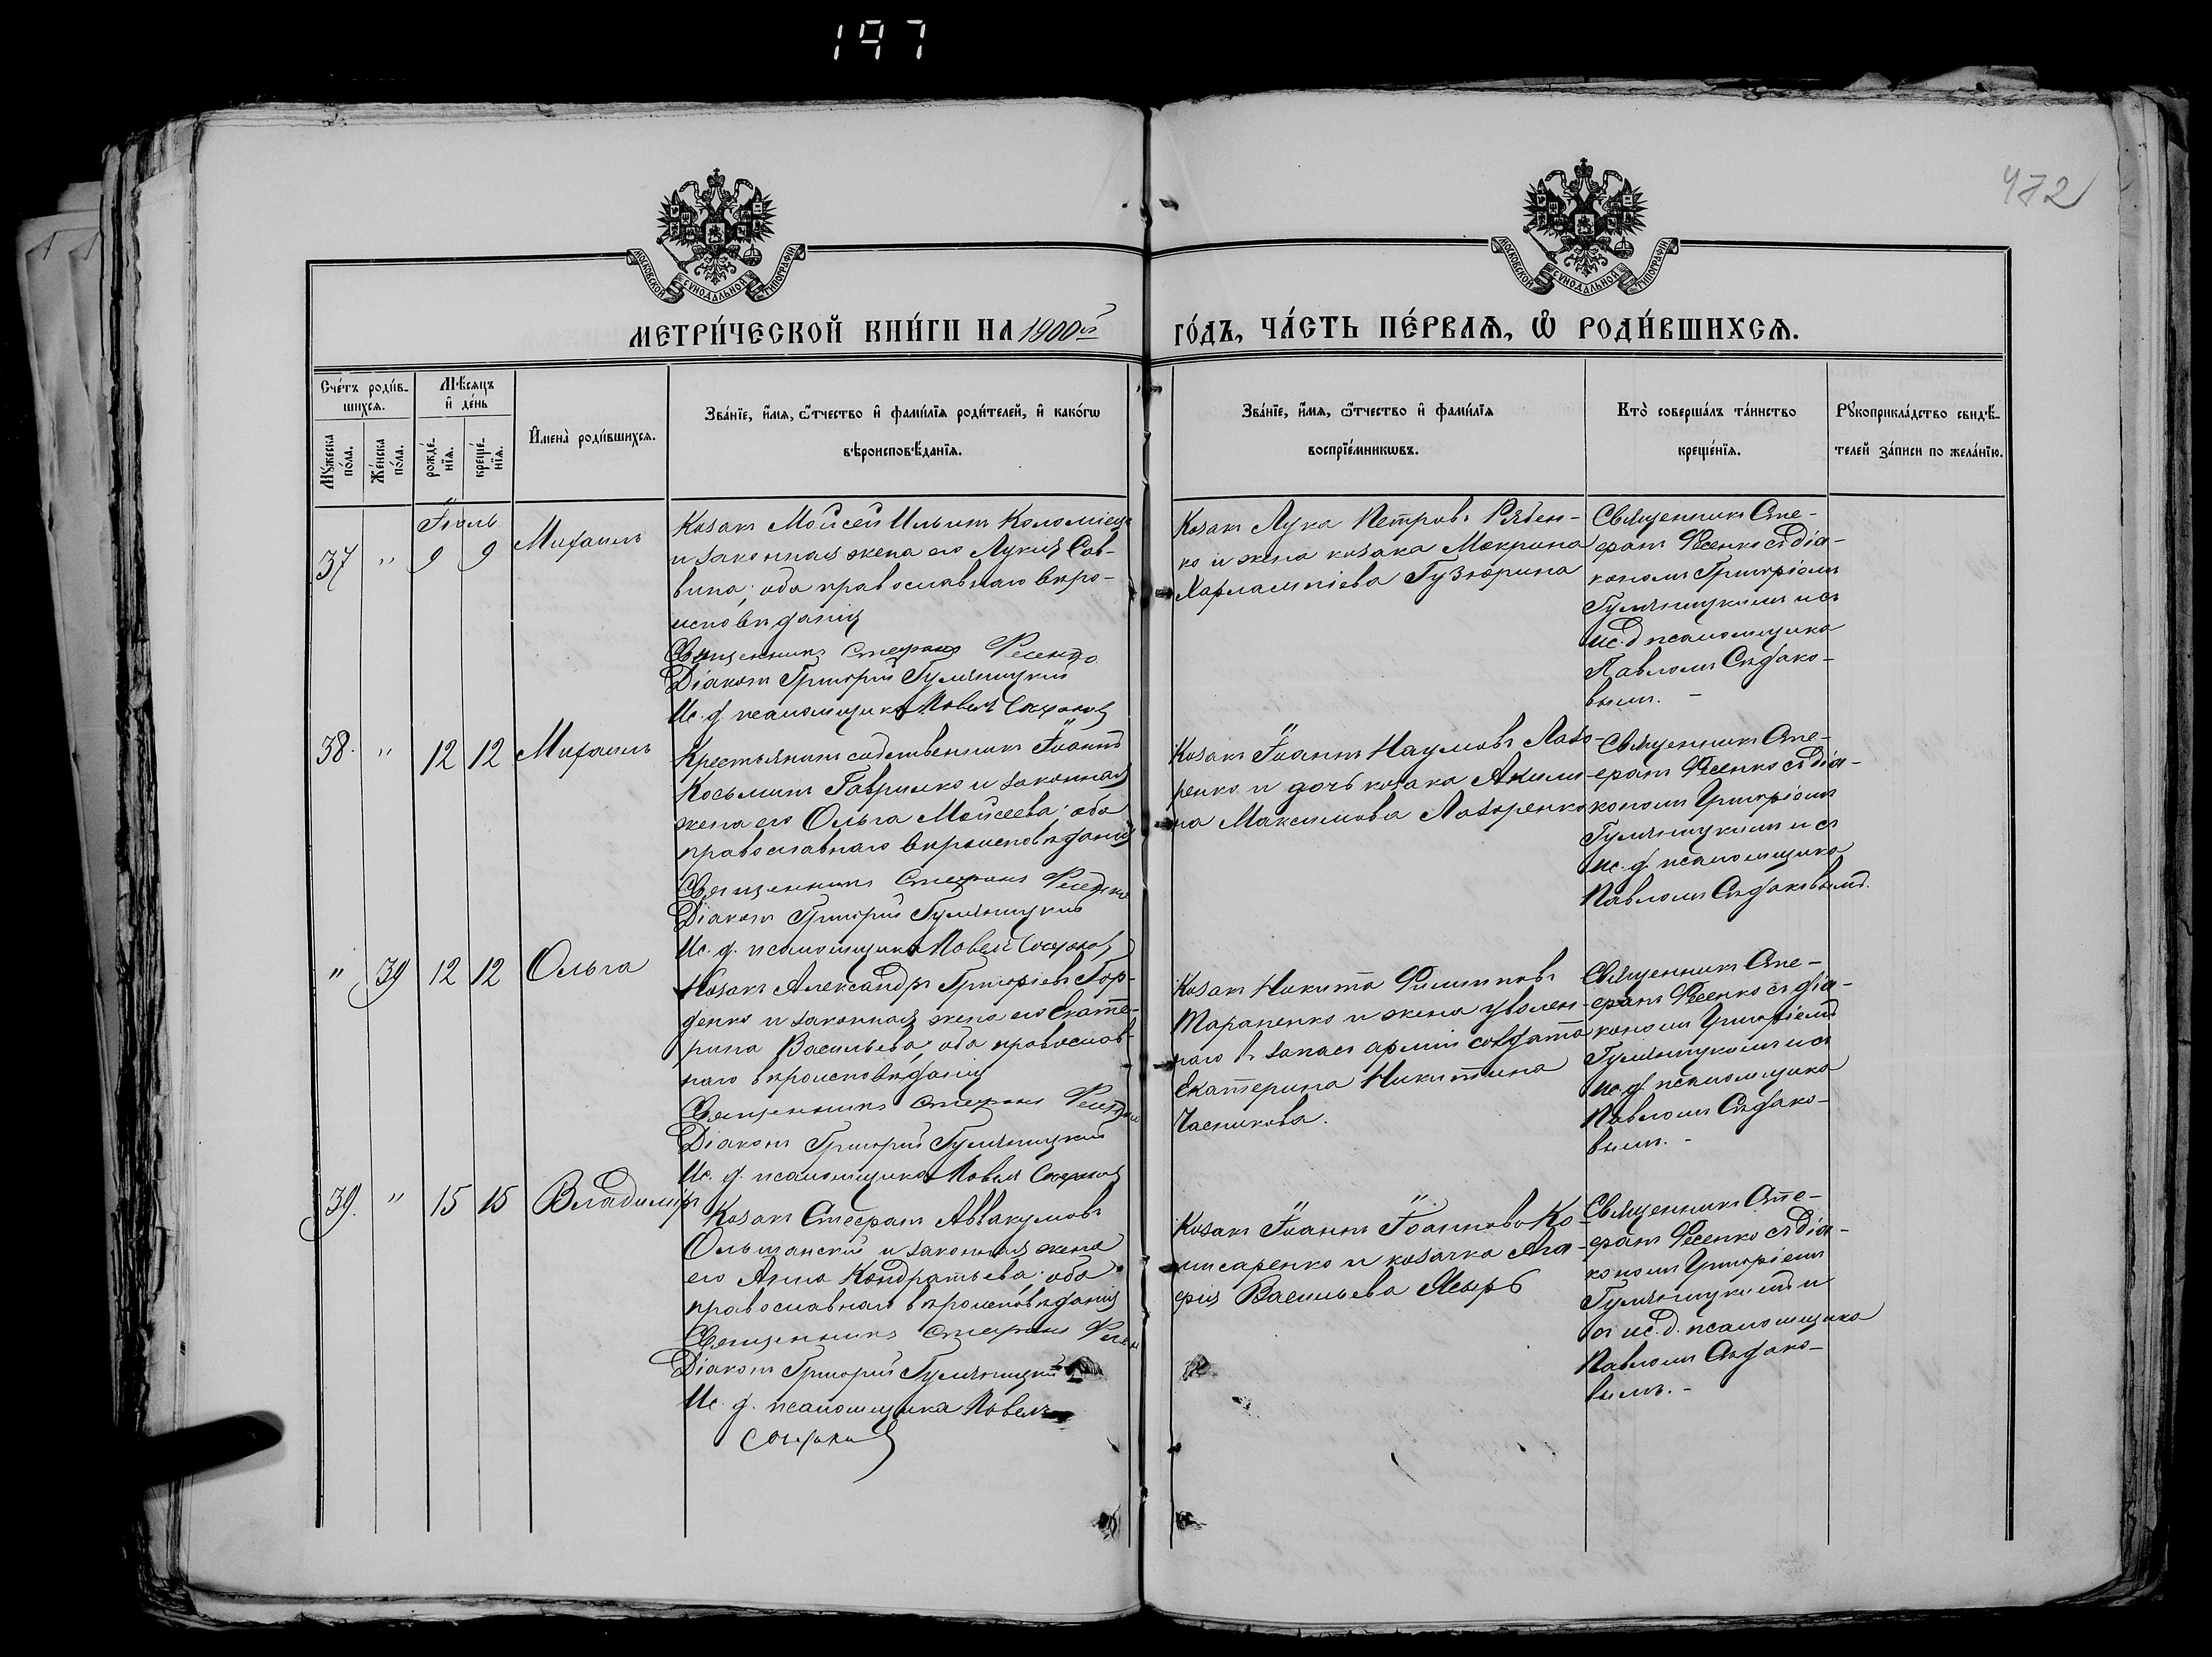 197
472
МОСКОВСКОЙ СѴНОДАЛЬНОЙ ТИПОГРАФІИ
МОСКОВСКОЙ СѴНОДАЛЬНОЙ ТИПОГРАФІИ
МЕТРИ́ЧЕСКОЙ КНИ́ГИ НА 1900й
ГО́ДЪ, ЧА́СТЬ ПЕ́РВАѦ, Ѽ РОДИ́ВШИХСѦ.
Сче́тъ роди́в-
шихсѧ.
Мꙋ́жеска
по́ла.
Же́нска
по́ла.
Мѣ́сѧцъ
и҆ де́нь
рожде́-
нїѧ.
креще́-
нїѧ.
И҆мена̀ роди́вшихсѧ.
Зва́нїе, и҆́мѧ, ѻ҆́тчество и҆ фами́лїѧ роди́телей, и҆ како́гѡ
вѣроисповѣ́данїѧ.
Зва́нїе, и҆́мѧ, ѻ҆́тчество и҆ фами́лїѧ
воспрїе́мникѡвъ.
Кто̀ соверша́лъ та́инство
креще́нїѧ.
Рꙋкоприкла́дство свидѣ́-
телей за́писи по жела́нїю.
Іюль
37 " 9 9 Михаилъ
Козакъ Моѵсей Ильинъ Коломіецъ
и законная жена его Лукія Сав-
вина; оба православнаго вѣро-
исповѣданія
Священникъ Стефанъ Фесенко
Діаконъ Григорій Гумяницкій
Ис. д. псаломщика Павелъ Сѣдаковъ
Козакъ Лука Петровъ Рябен-
ко и жена козака Макрина
Харлампіева Гузюрина
Священникъ Сте-
фанъ Фесенко съ діа-
кономъ Григоріемъ
Гумяницкимъ и съ
ис. д псаломщика
Павломъ Сѣдако-
вымъ. -
38. " 12 12 Михаилъ
Крестьянинъ собственникъ Іоаннъ
Косьминъ Гаврилко и законная
жена его Ольга Моѵсеева; оба
православнаго вѣроисповѣданія
Священникъ Стефанъ Фесенко
Діаконъ Григорій Гумяницкій
Ис. д. псаломщика Павелъ Сѣдаковъ
Козакъ Іоаннъ Наумовъ Лазо-
ренко и дочь козака Акили-
на Максимова Лазоренко
Священникъ Сте-
фанъ Фесенко съ діа-
кономъ Григоріемъ
Гумяницкимъ и съ
ис. д. псаломщика
Павломъ Сѣдаковымъ.
" 39 12 12 Ольга
Козакъ Александръ Григорьевъ Гор-
денко и законная жена его Екате-
рина Васильева; оба православ-
наго вѣроисповѣданія
Священникъ Стефанъ Фесенко
Діаконъ Григорій Гумяницкій
Ис. д. псаломщика Павелъ Сѣдаковъ
Козакъ Никита Филипповъ
Тараненко и жена уволен-
наго въ запасъ арміи солдата
Екатерина Никитина
Часникова.
Священникъ Сте-
фанъ Фесенко съ діа-
кономъ Григоріемъ
Гумяницкимъ и съ
ис. д. псаломщика
Павломъ Сѣдако-
вымъ. -
39. " 15 15 Владиміръ
Козакъ Стефанъ Аввакумовъ
Ольшанскій и законная жена
его Анна Кондратьева; оба
православнаго вѣроисповѣданія
Священникъ Стефанъ Фесен
Діаконъ Григорій Гумяницкій
Ис. д. псаломщика Павелъ
Сѣдаковъ
Козакъ Іоаннъ Іоанновъ Ко-
мисаренко и козачка Ага-
фія Васильева Ясырь
Священникъ Сте-
фанъ Фесенко съ діа-
кономъ Григоріемъ
Гумяницкимъ и
съ ис. д. псаломщика
Павломъ Сѣдако-
вымъ. -